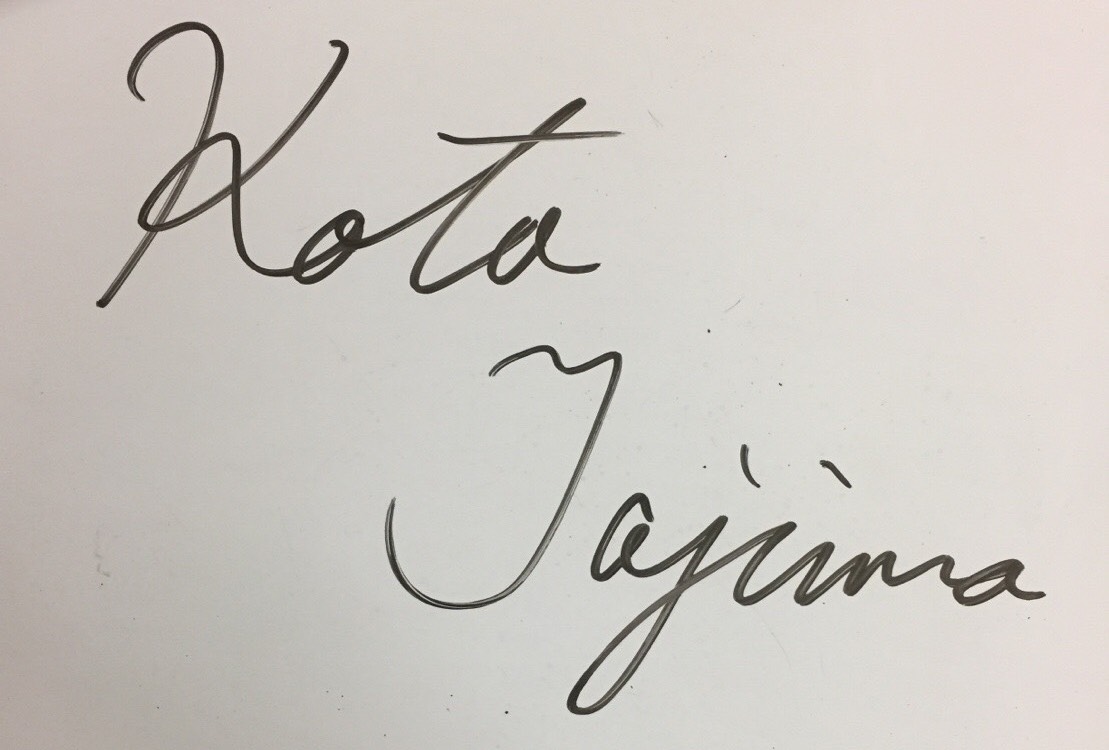 Kota
Tajima